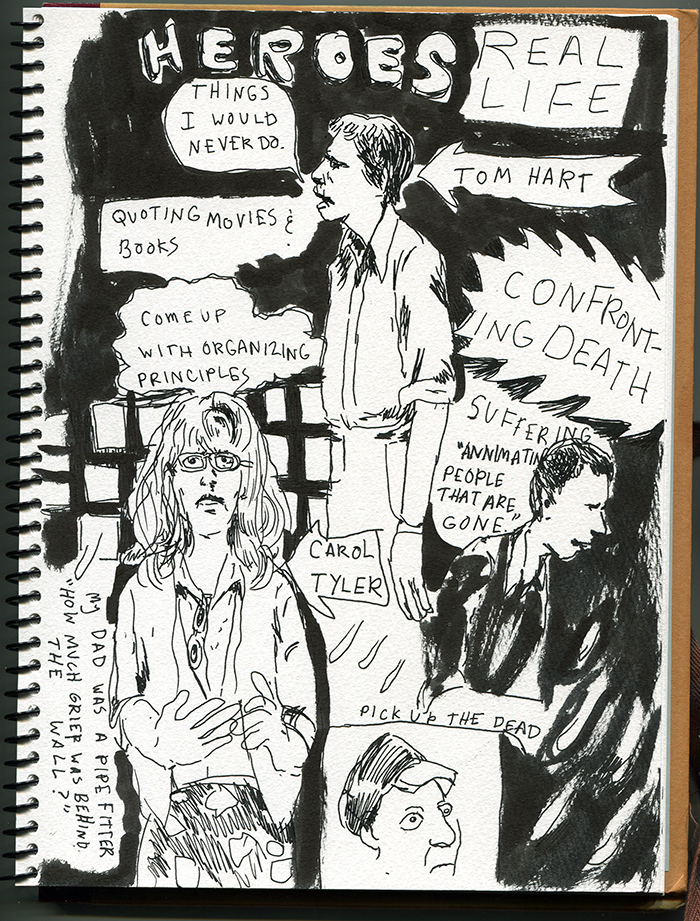 HEROES
REAL
LIFE
THINGS
I WOULD
NEVER DO.
TOM HART
QUOTING MOVIES &
BOOKS
CONFRONT-
ING DEATH
COME UP
WITH ORGANIZING
PRINCIPLES
SUFFERING
"ANNIMATIN
PEOPLE
THAT ARE
GONE."
CAROL
TYLER
MY DAD WAS A PIPE FITTER
"HOW MUCH GRIEF WAS BEHIND
THE WALL?"
PICK UP THE DEAD